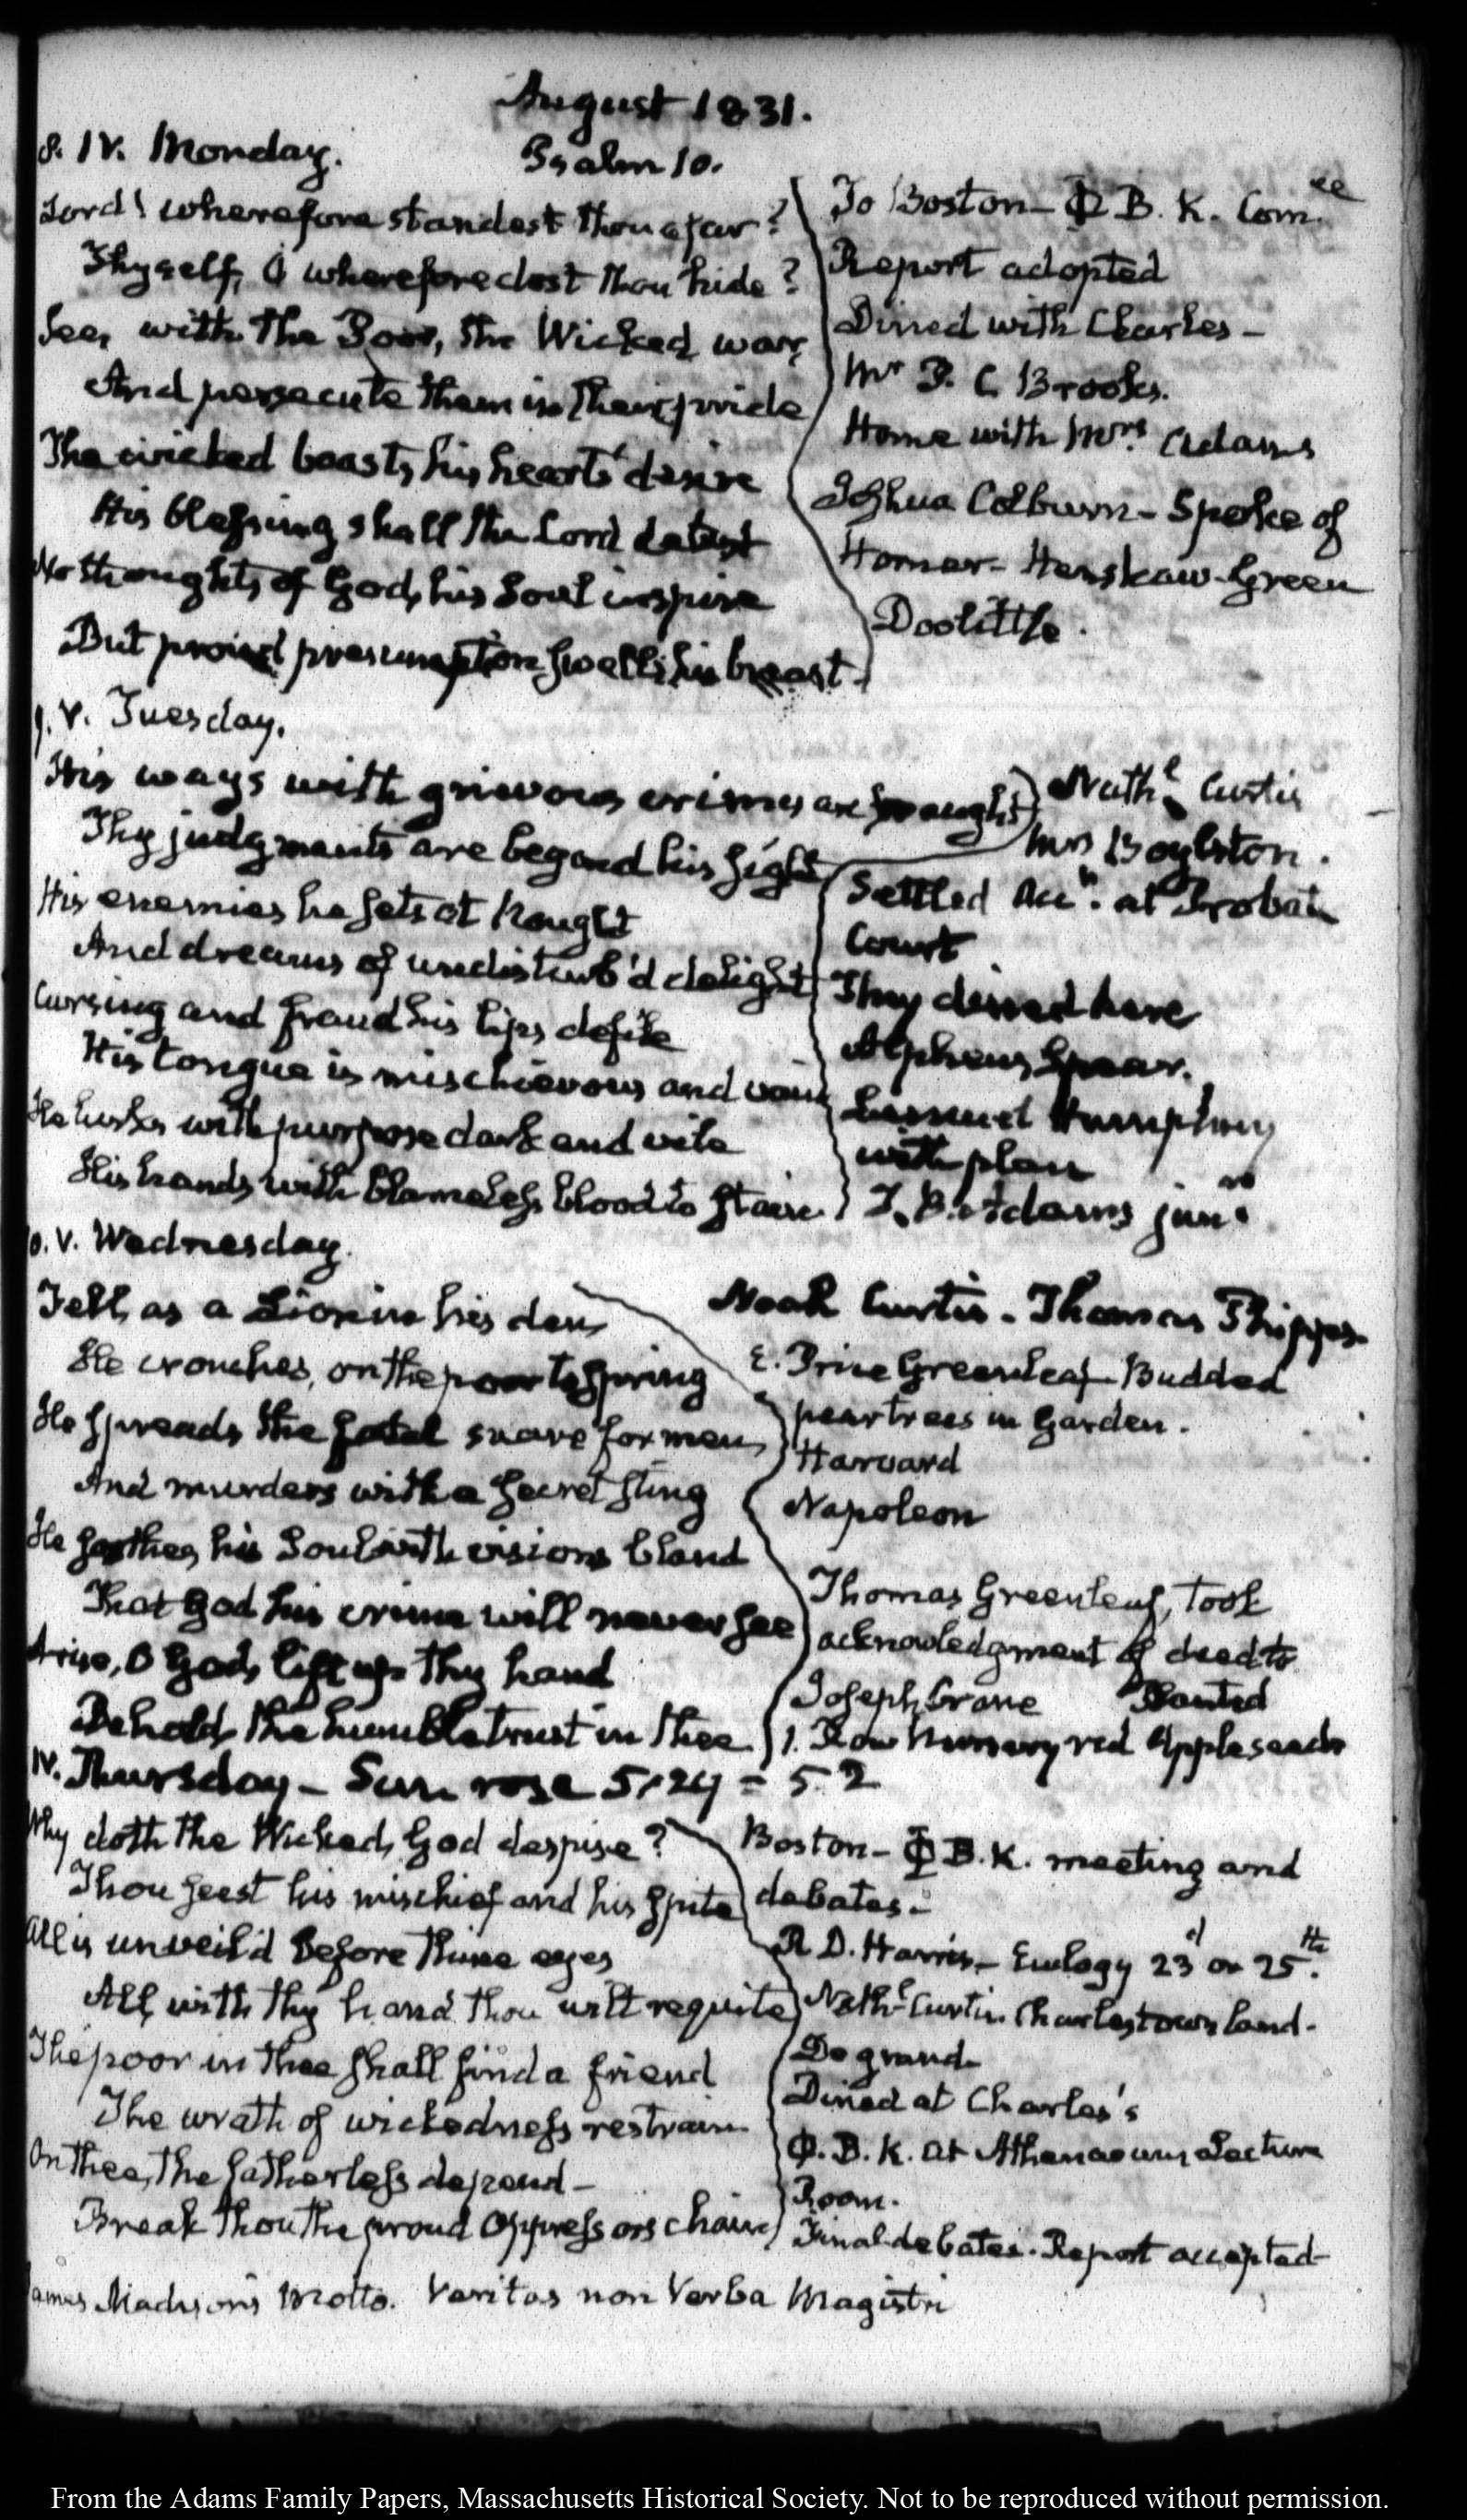 August 1831.
8. IV. Monday.
Psalm 10.
Lord! wherefore standest thou afar?
Thyself, O wherefore dost thou hide?
See, with the Poor, the Wicked war,
And persecute them in their pride
The wicked boasts his hearts' desire
His blessing shall the Lord detest
No thoughts of God, his Soul inspire
But proud presumption swells his breast.
To Boston— Φ B. K. Comee
Report adopted
Dined with Charles—
Mr P. C Brooks.
Home with Mrs Adams
Joshua Colburn— Spoke of
Homer— Henshaw— Green
Doolittle.
9. V. Tuesday.
His ways with grievous crimes are fraught
Thy judgments are beyond his sight
His enemies he sets at nought
And dreams of undisturb'd delight
Cursing and fraud his lips defile
His tongue is mischievous and vain
He lurks with purpose dark and vile
His hands with blameless blood to stain.
Nathl Curtis
Mrs Boylston.
Settled Accts. at Probate
Court
They dined here
Alpheus Spear.
Lemuel Humphrey
with plan
T. B. Adams junr
10. V. Wednesday.
Fell, as a Lion in his den,
He crouches, on the poor to Spring
He spreads the fatal snare for men,
And murders with a secret sting
He soothes his Soul with visions bland
That God his crime will never see
Arise, O God, lift up thy hand
Behold the humble trust in thee.
Noah Curtis. Thomas Phipps.
E. Price Greenleaf Budded
peartrees in Garden.
Harvard
Napoleon
Thomas Greenleaf, took
acknowledgment of deed to
Joseph Crane Planted
1. Row Nursery red Appleseeds
IV. Thursday— Sun rose 5:24 = 5.2
Why doth the Wicked, God despise?
Thou seest his mischief and his spite
All is unveil'd before thine eyes
All, with thy hand thou wilt requite
The poor in thee shall find a friend
The wrath of wickedness restrain
On thee, the fatherless depend—
Break thou the proud Oppressors chain
Boston— Φ B. K. meeting and
debates.—
R D. Harris— Eulogy 23d or 25th.
Nathl Curtis. Charlestown land.
Degrand.
Dined at Charles's
Φ. B. K. at Athenaeum Lecture
Room.
Final debates. Report accepted—
James Madison's Motto. Veritas non Verba Magistri
From the Adams Family Papers, Massachusetts Historical Society. Not to be reproduced without permission.